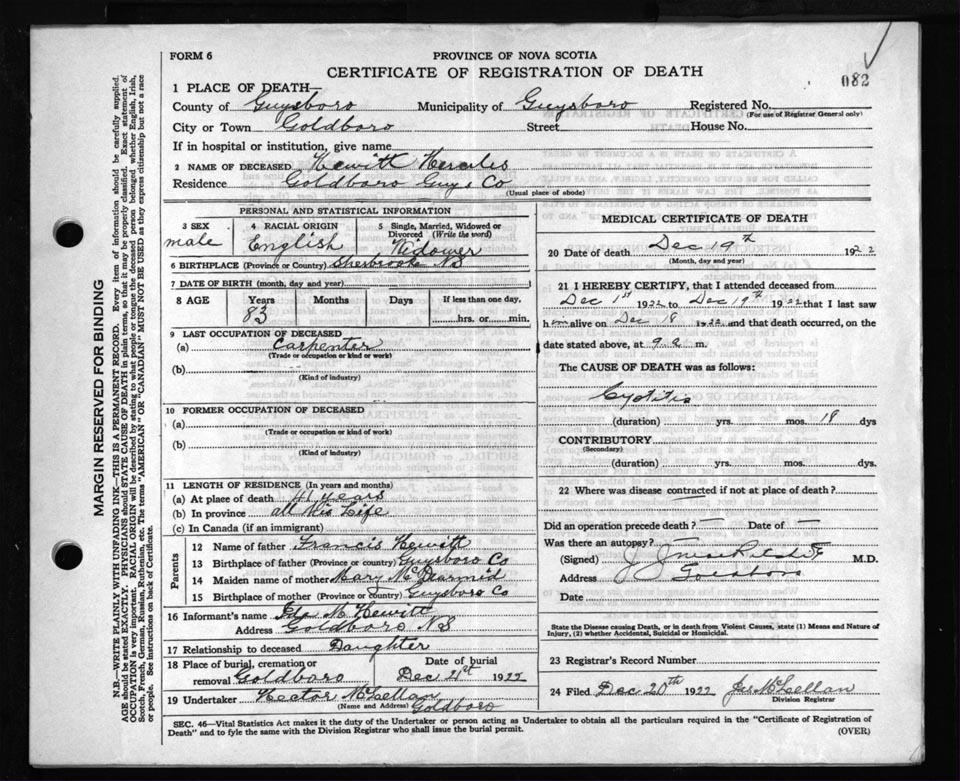 FORM 6
PROVINCE OF NOVA SCOTIA
CERTIFICATE OF REGISTRATION OF DEATH
082
1 PLACE OF DEATH—
County of Guysboro Municipality of Guysboro Registered No.
(For use of Registrar General only)
City or Town Goldboro Street House No.
If in hospital or institution, give name
2 NAME OF DECEASED Hewitt Hercules
Residence Goldboro Guys Co
(Usual place of abode)
PERSONAL AND STATISTICAL INFORMATION
3 SEX 4 RACIAL ORIGIN 5 Single, Married, Widowed or Divorced (Write the word)
male English Widower
6 BIRTHPLACE (Province or Country) Sherbrooke NS
7 DATE OF BIRTH (month, day and year)
8 AGE Years Months Days If less than one day,
83 hrs. or min.
9 LAST OCCUPATION OF DECEASED
(a) Carpenter
(Trade or occupation or kind or work)
(b)
(Kind of industry)
10 FORMER OCCUPATION OF DECEASED
(a)
(Trade or occupation or kind of work)
(b)
(Kind of industry)
11 LENGTH OF RESIDENCE (In years and months)
(a) At place of death 41 years
(b) In province all His Life
(c) In Canada (if an immigrant)
Parents
12 Name of father Francis Hewitt
13 Birthplace of father (Province or country) Guysboro Co
14 Maiden name of mother Mary McDearmid
15 Birthplace of mother (Province or country) Guysboro Co
16 Informant's name M Hewitt
Address Goldboro NS
17 Relationship to deceased Daughter
18 Place of burial, cremation or removal Goldboro Date of burial Dec 21st 1922
19 Undertaker Hector McLellan
(Name and Address) Goldboro
MEDICAL CERTIFICATE OF DEATH
20 Date of death Dec 19th 1922
(Month, day and year)
21 I HEREBY CERTIFY, that I attended deceased from
Dec 1st 1922 to Dec 19th 1922 that I last saw
him alive on Dec 18 1922 and that death occurred, on
date stated above, at 9 a m.
The CAUSE OF DEATH was as follows:
Cystitis
(duration) yrs. mos. 18 dys
CONTRIBUTORY
(Secondary)
(duration) yrs. mos. dys.
22 Where was disease contracted if not at place of death?
Did an operation precede death? — Date of —
Was there an autopsy?
(Signed) J J M.D.
Address Goldboro
Date
State the Disease causing Death, or in death from Violent Causes, state (1) Means and Nature of
Injury, (2) whether Accidental, Suicidal or Homicidal.
23 Registrar's Record Number
24 Filed Dec 20th 1922 McLellan
Division Registrar
SEC. 46—Vital Statistics Act makes it the duty of the Undertaker or person acting as Undertaker to obtain all the particulars required in the "Certificate of Registration of
Death" and to fyle the same with the Division Registrar who shall issue the burial permit.
(OVER)
MARGIN RESERVED FOR BINDING
N.B.—WRITE PLAINLY WITH UNFADING INK—THIS IS A PERMANENT RECORD. Every item of information should be carefully supplied.
AGE should be stated EXACTLY. PHYSICIANS should STATE CAUSE OF DEATH in plain terms, so that it may be properly classified. Exact statement of
OCCUPATION is very important. RACIAL ORIGIN will be described by stating to what people or tongue the deceased person belonged whether English, Irish,
Scotch, French, German, Russian, Ruthenian, etc. The terms "AMERICAN" OR "CANADIAN" MUST NOT BE USED as they express citizenship but not a race
or people. See instructions on back of Certificate.